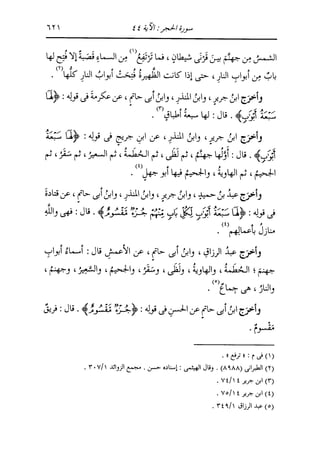 سورة الحجر : الآية ٤٤ ٦٢١
الشمسَ مِن جهنَّمَ بينَ قَرْنَى شيطانٍ ، فما تَرْتَفِعُ(١) مِن السماءِ قَصَبةً إلا فُتِح لها
بابٌ مِن أبوابِ النارِ ، حتى إذا كانت الظَّهيرةُ فُتِحَتْ أبوابُ النارِ كلُّها(٢) .
وأخرَج ابنُ جريرٍ ، وابنُ المنذرِ ، وابنُ أبى حاتمٍ ، عن عكرمةَ فى قولِه : ﴿لَهَا
سَبْعَةُ أَبْوَٰبٍ﴾ . قال : لها سبعةُ أطباقٍ(٣) .
وأخرَج ابنُ جريرٍ ، وابنُ المنذرِ ، عن ابنِ جريجٍ فى قولِه : ﴿لَهَا سَبْعَةُ
أَبْوَٰبٍ﴾ . قال : أوَّلُها جهنَّمُ ، ثم لَظًى ، ثم الحُطَمةُ ، ثم السعيرُ ، ثم سَقَرُ ، ثم
الجحيمُ ، ثم الهاويةُ ، والجحيمُ فيها أبو جهلٍ(٤) .
وأخرَج عبدُ بنُ حميدٍ ، وابنُ جريرٍ ، وابنُ المنذرِ ، وابنُ أبى حاتمٍ ، عن قتادةَ
فى قولِه : ﴿لَهَا سَبْعَةُ أَبْوَٰبٍ لِّكُلِّ بَابٍ مِّنْهُمْ جُزْءٌ مَّقْسُومٌ﴾ . قال : فهى واللَّهِ
منازلُ بأعمالِهم(٤) .
وأخرَج عبدُ الرزاقِ ، وابنُ أبى حاتمٍ ، عن الأعمشِ قال : أسماءُ أبوابِ
جهنمَ : الحُطَمةُ ، والهاويةُ ، ولَظَى ، وسَقَرُ ، والجحيمُ ، والسَّعيرُ ، وجهنمُ ،
والنارُ ، هى جِماعٌ(٥) .
وأخرَج ابنُ أبى حاتمٍ عن الحسنِ فى قولِه : ﴿جُزْءٌ مَّقْسُومٌ﴾ . قال : فريقٌ
مَقْسومٌ .
(١) فى م : « ترفع » .
(٢) الطبرانى (٨٩٨٨) . وقال الهيثمى : إسناده حسن . مجمع الزوائد ٣٠٧/١ .
(٣) ابن جرير ٧٤/١٤ .
(٤) ابن جرير ٧٥/١٤ .
(٥) عبد الرزاق ٣٤٩/١ .